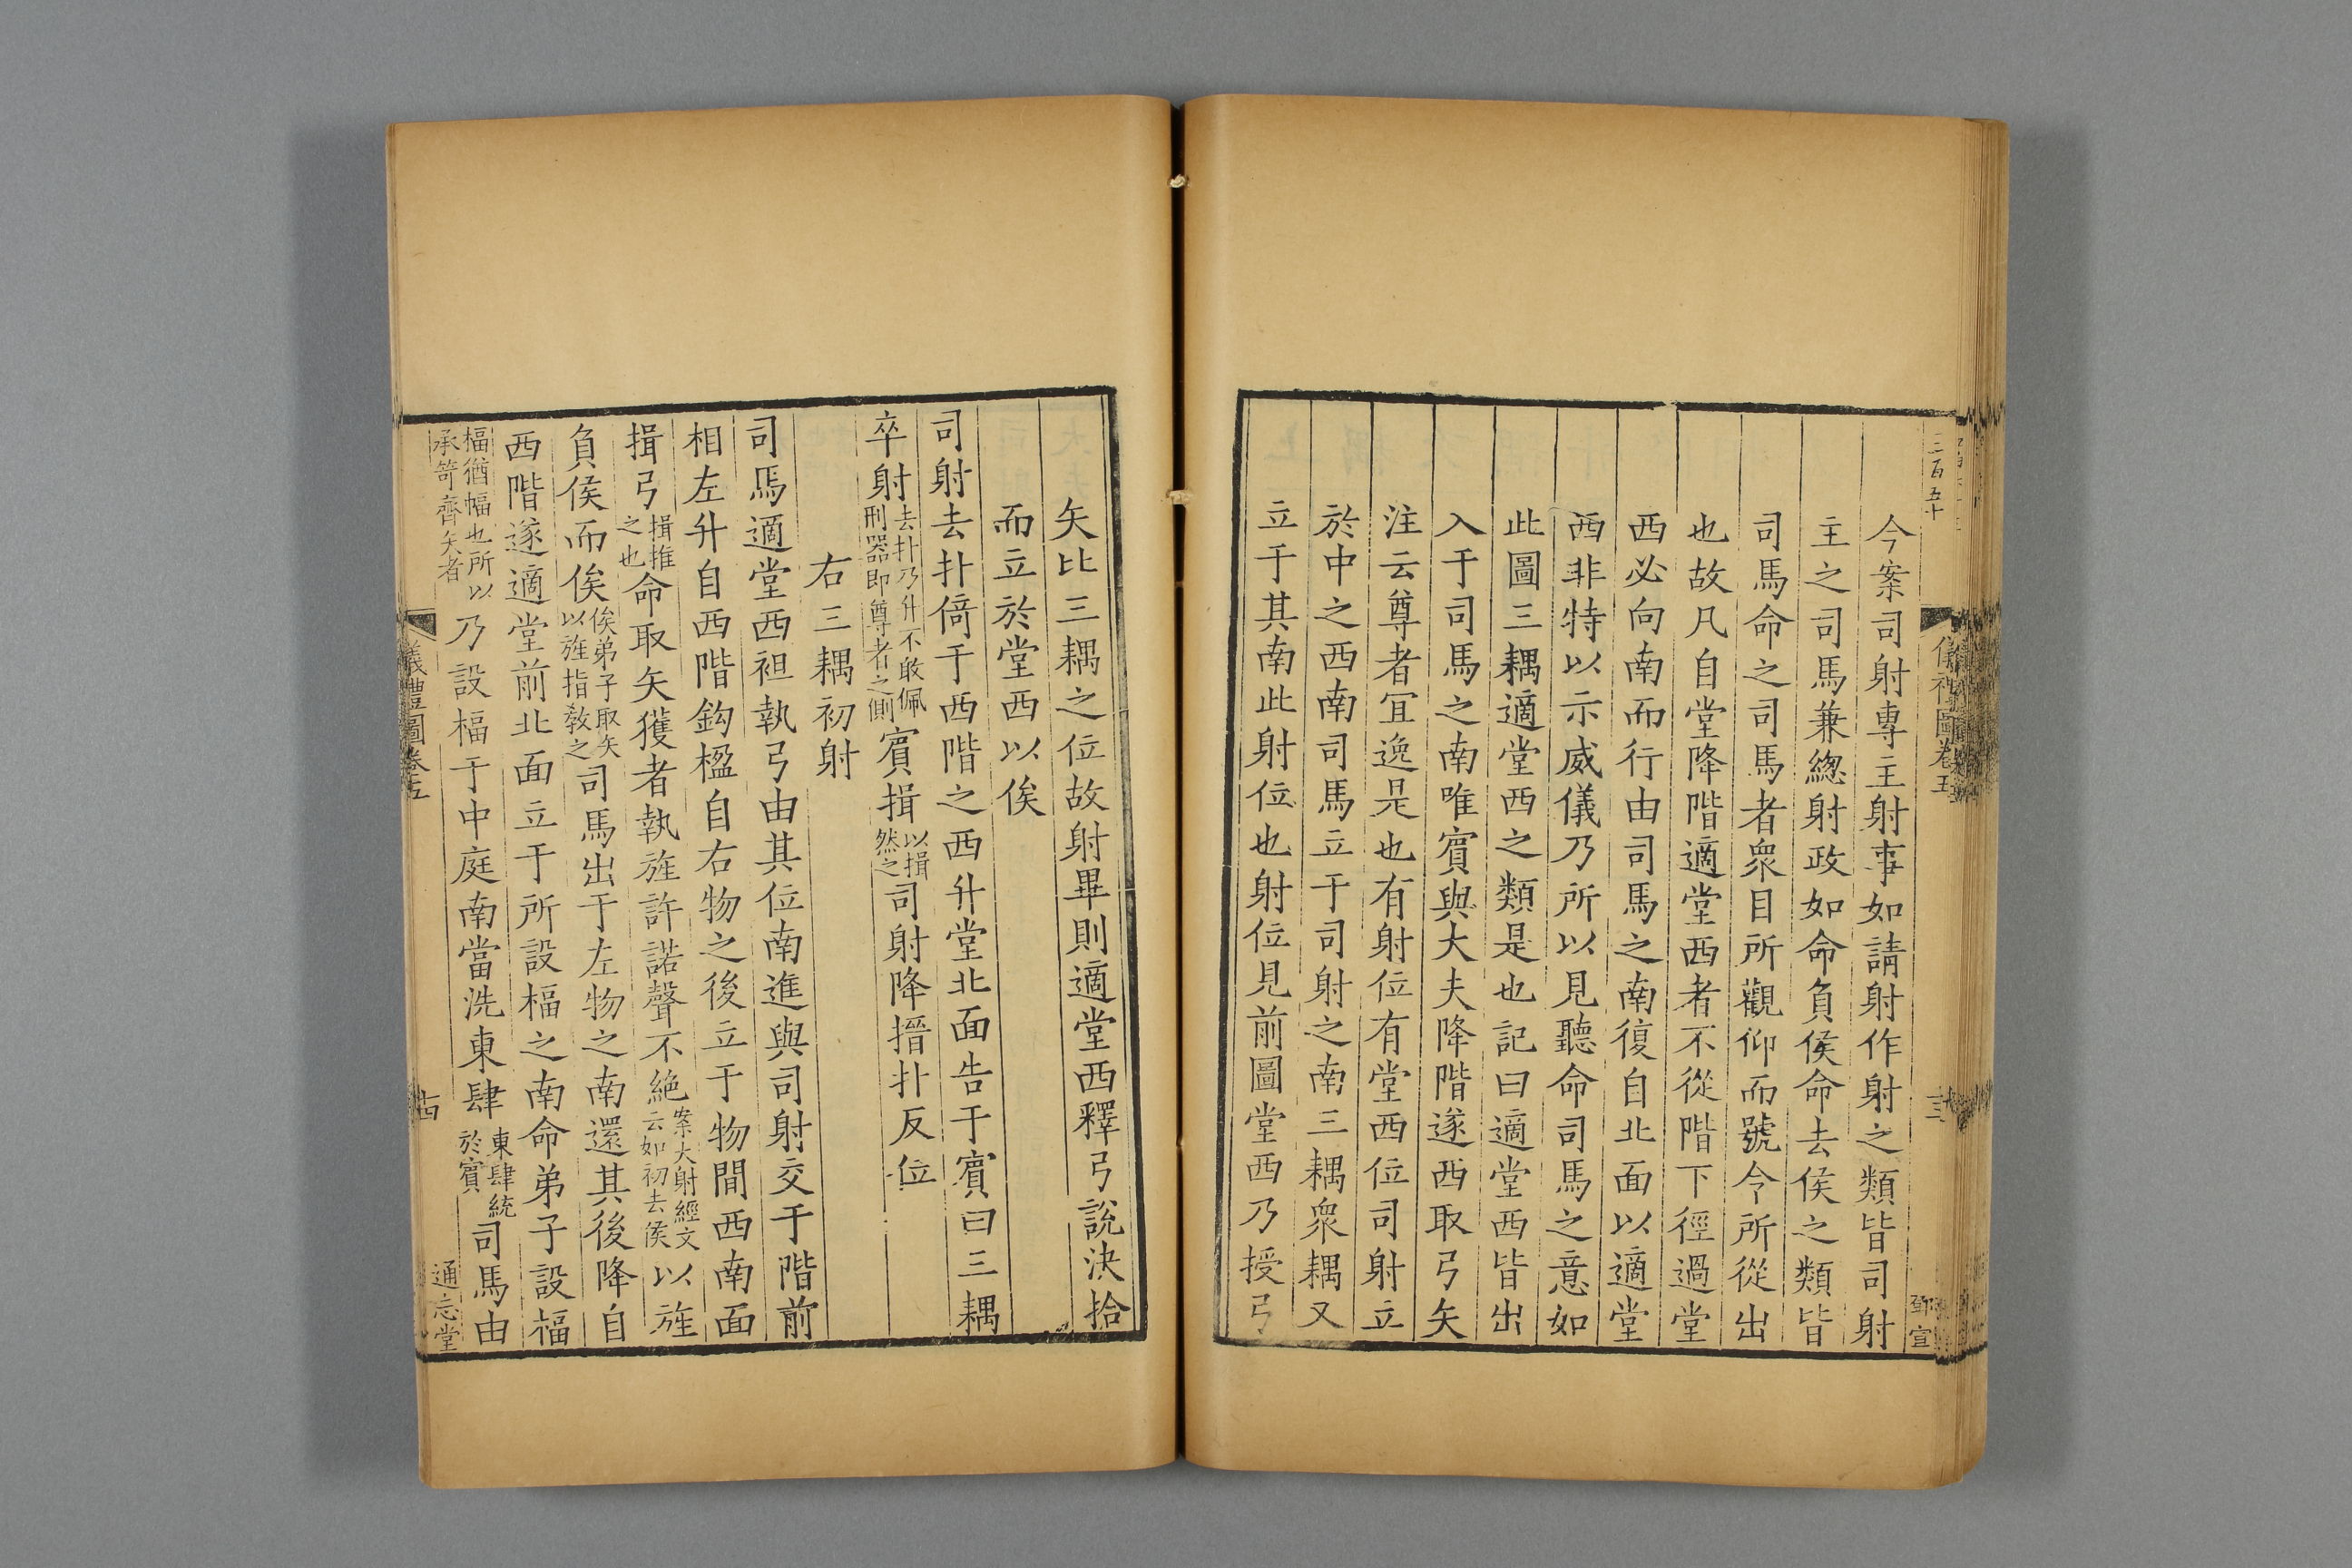 三百五十
儀禮圖卷五
鄧宣
今案司射專主射事如請射作射之類皆司射
主之司馬兼緫射政如命負侯命去侯之類皆
司馬命之司馬者衆目所觀仰而號令所從出
也故凡自堂降階適堂西者不從階下徑過堂
西必向南而行由司馬之南復自北面以適堂
西非特以示威儀乃所以見聽命司馬之意如
此圖三耦適堂西之類是也記曰適堂西皆出
入于司馬之南唯賓與大夫降階遂西取弓矢
注云尊者宜逸是也有射位有堂西位司射立
於中之西南司馬立于司射之南三耦衆耦又
立于其南此射位也射位見前圖堂西乃授弓
矢比三耦之位故射畢則適堂西釋弓說決拾
而立於堂西以俟
司射去扑倚于西階之西升堂北面告于賓曰三耦
卒射去扑乃升不敢佩刑器即尊者之側賓揖以揖然之司射降搢扑反位
右三耦初射
司馬適堂西袒執弓由其位南進與司射交于階前
相左升自西階鈎楹自右物之後立于物間西南面
揖弓揖推之也命取矢獲者執旌許諾聲不絶案大射經文云如初去侯以旌
負侯而俟俟弟子取矢以旌指敎之司馬出于左物之南還其後降自
西階遂適堂前北面立于所設楅之南命弟子設楅
楅猶幅也所以承笴齊矢者乃設楅于中庭南當洗東肆東肆統於賓司馬由
儀禮圖卷五
十四
通志堂